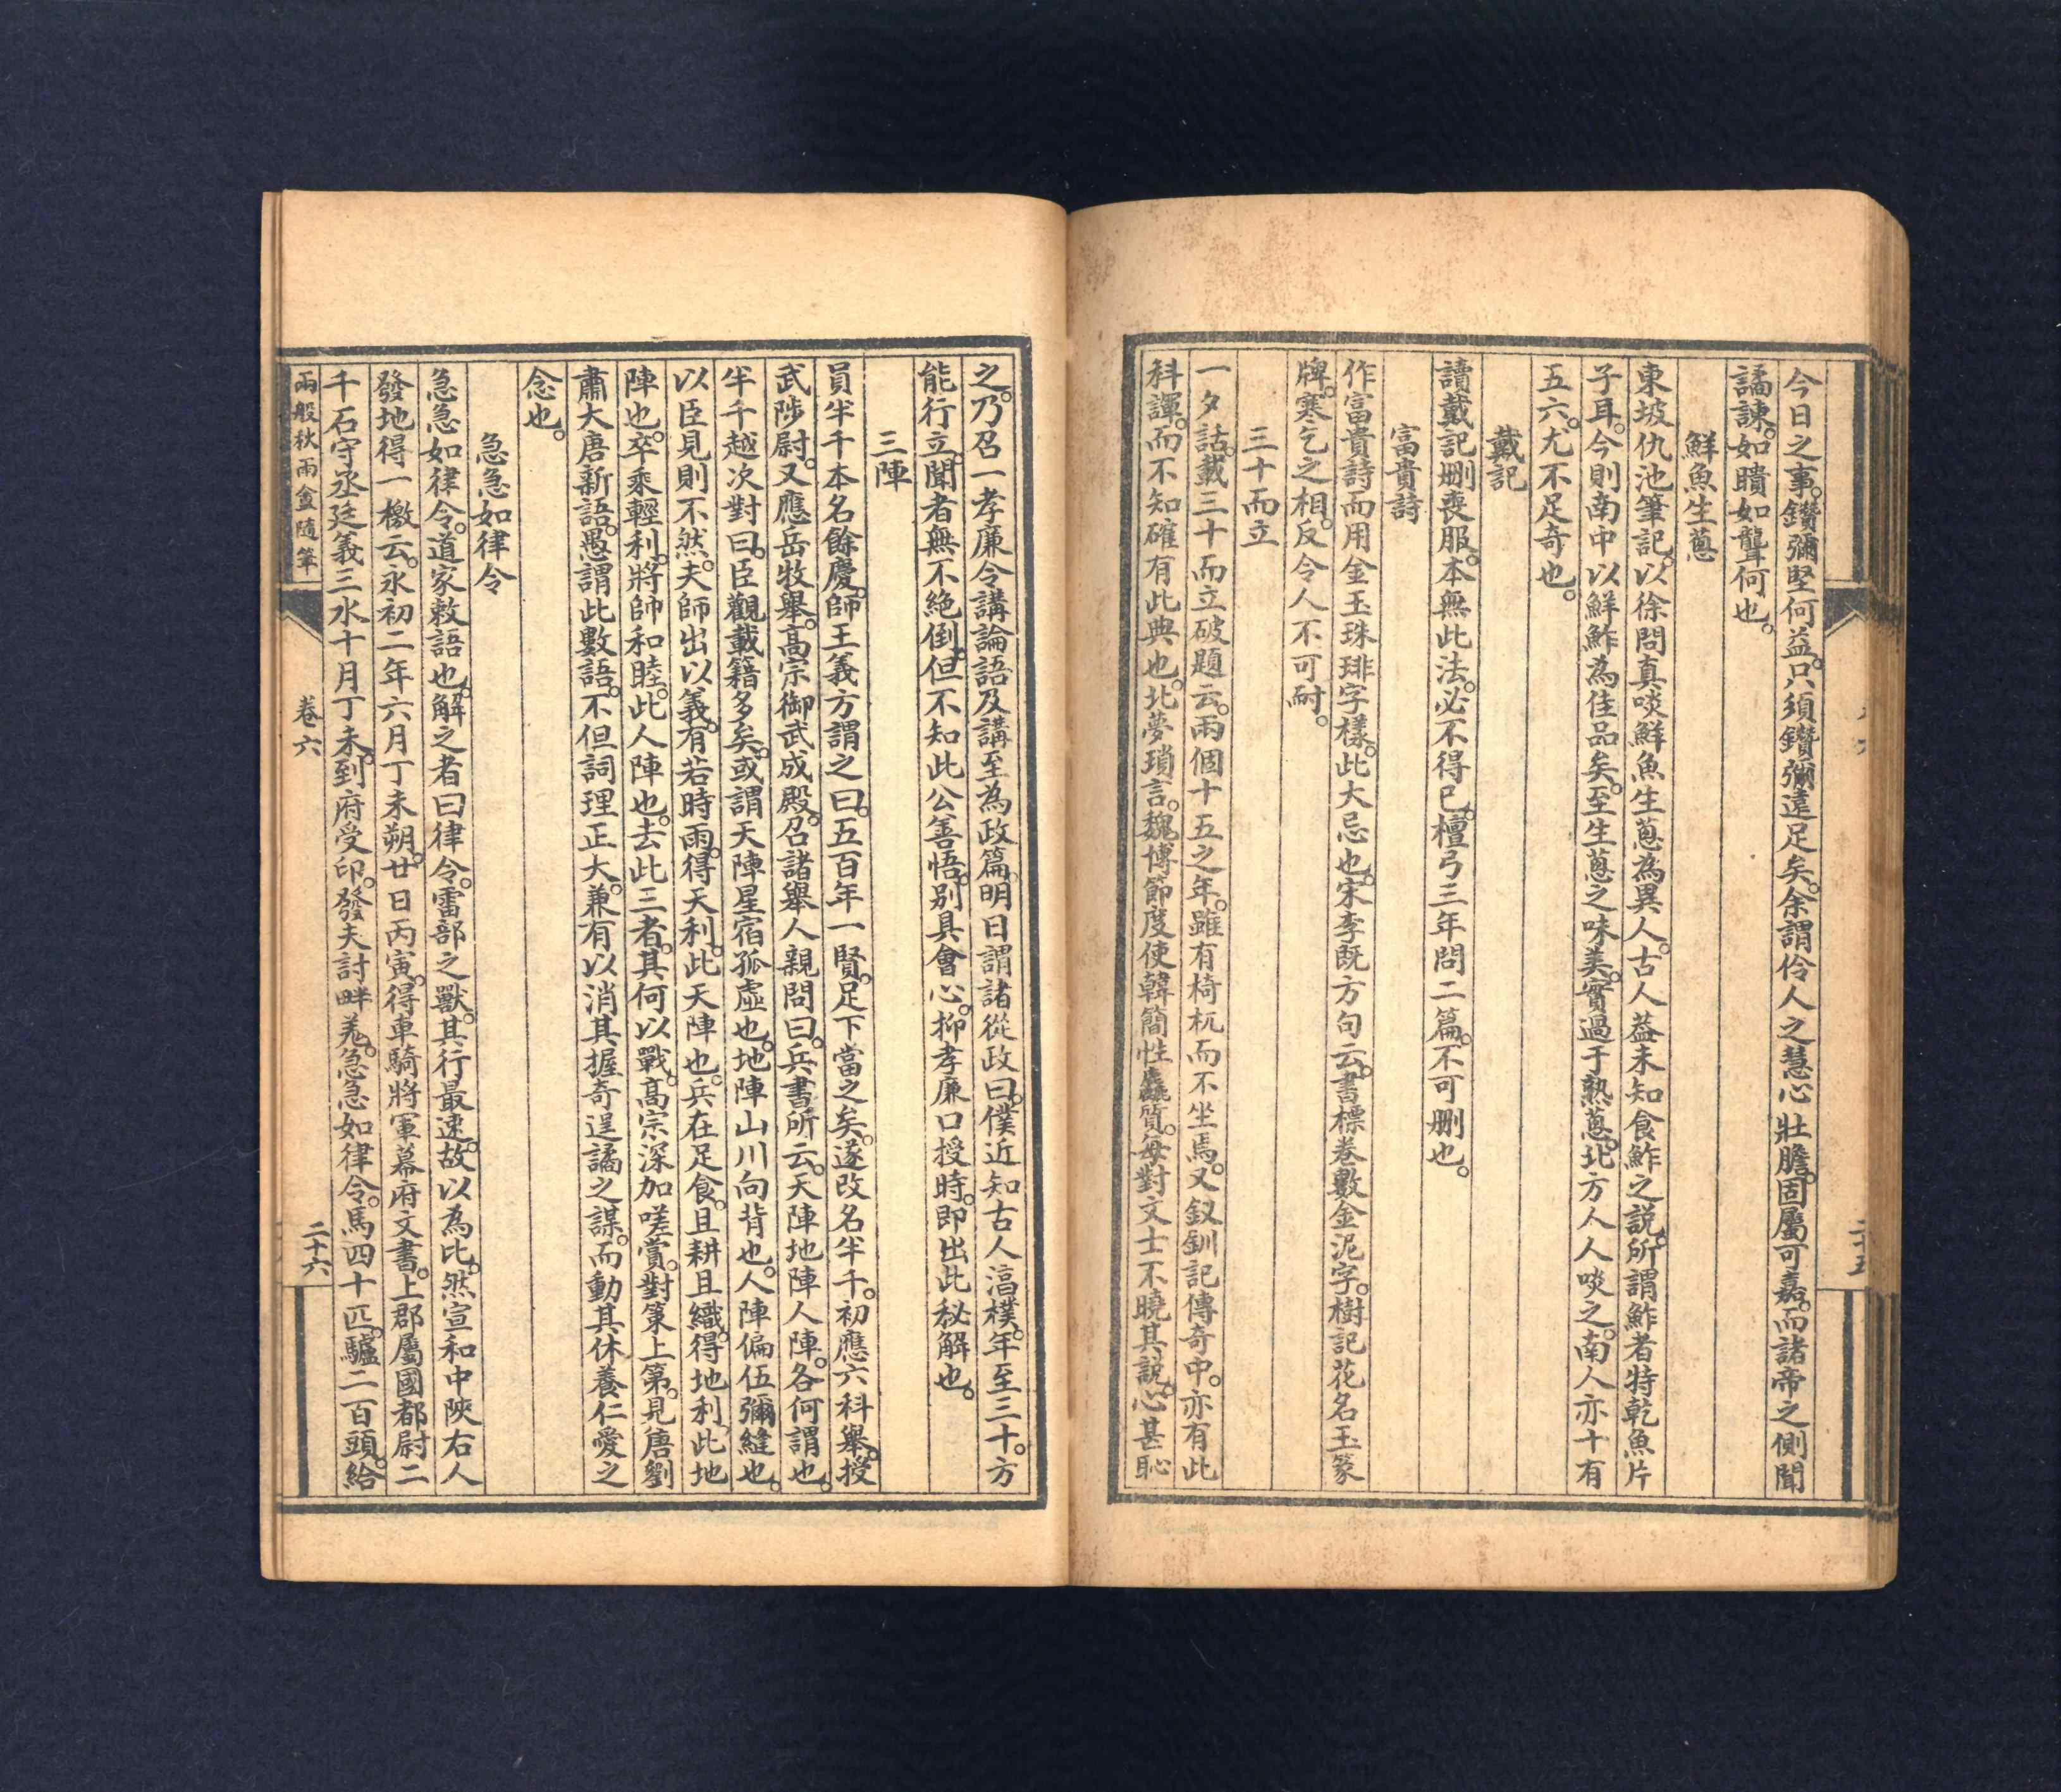 今日之事。鑽彌堅何益。只須鑽彌遠足矣。余謂伶人之慧心壯膽。固屬可嘉。而諸帝之側聞
譎諫。如瞶如聾何也。
鮮魚生蔥
東坡仇池筆記。以徐問真啖鮮魚生蔥為異人。古人蓋未知食鮓之説。所謂鮓者特乾魚片
子耳。今則南中以鮮鮓為佳品矣。至生蔥之味美。實過于熟蔥。北方人人啖之。南人亦十有
五六。尤不足奇也。
戴記
讀戴記删喪服。本無此法。必不得已。檀弓三年問二篇。不可删也。
富貴詩
作富貴詩而用金玉珠琲字樣。此大忌也。宋李既方句云。書標卷數金泥字。樹記花名玉篆
牌。寒乞之相。反令人不可耐。
三十而立
一夕話。載三十而立破題云。兩個十五之年。雖有椅杌而不坐焉。又釵釧記傳奇中。亦有此
科諢。而不知確有此典也。北夢瑣言。魏博節度使韓簡性麤質。每對文士不曉其説。心甚恥
之。乃召一孝廉令講論語及講至為政篇。明日謂諸從政曰。僕近知古人湻樸。年至三十。方
能行立。聞者無不絕倒。但不知此公善悟。别具會心。抑孝廉口授時。即出此秘解也。
三陣
員半千本名餘慶。師王義方謂之曰。五百年一賢。足下當之矣。遂改名半千。初應六科舉。授
武陟尉。又應岳牧舉。高宗御武成殿。召諸舉人親問曰。兵書所云。天陣地陣人陣。各何謂也。
半千越次對曰。臣觀載籍多矣。或謂天陣星宿孤虛也。地陣山川向背也。人陣偏伍彌縫也。
以臣見則不然。夫師出以義。有若時雨。得天利。此天陣也。兵在足食。且耕且織。得地利。此地
陣也。卒乘輕利。將帥和睦。此人陣也。去此三者。其何以戰。高宗深加嗟賞。對策上第。見唐劉
肅大唐新語。愚謂此數語。不但詞理正大。兼有以消其握奇逞譎之謀。而動其休養仁愛之
念也。
急急如律令
急急如律令。道家敕語也。解之者曰律令。雷部之獸。其行最速。故以為比。然宣和中陝右人
發地得一檄云。永初二年六月丁未朔。廿日丙寅。得車騎將軍幕府文書。上郡屬國都尉二
千石守丞廷義三水十月丁未。到府受印。發夫討畔羌。急急如律令。馬四十匹。驢二百頭。給
兩般秋雨盦隨筆
卷六
二十六